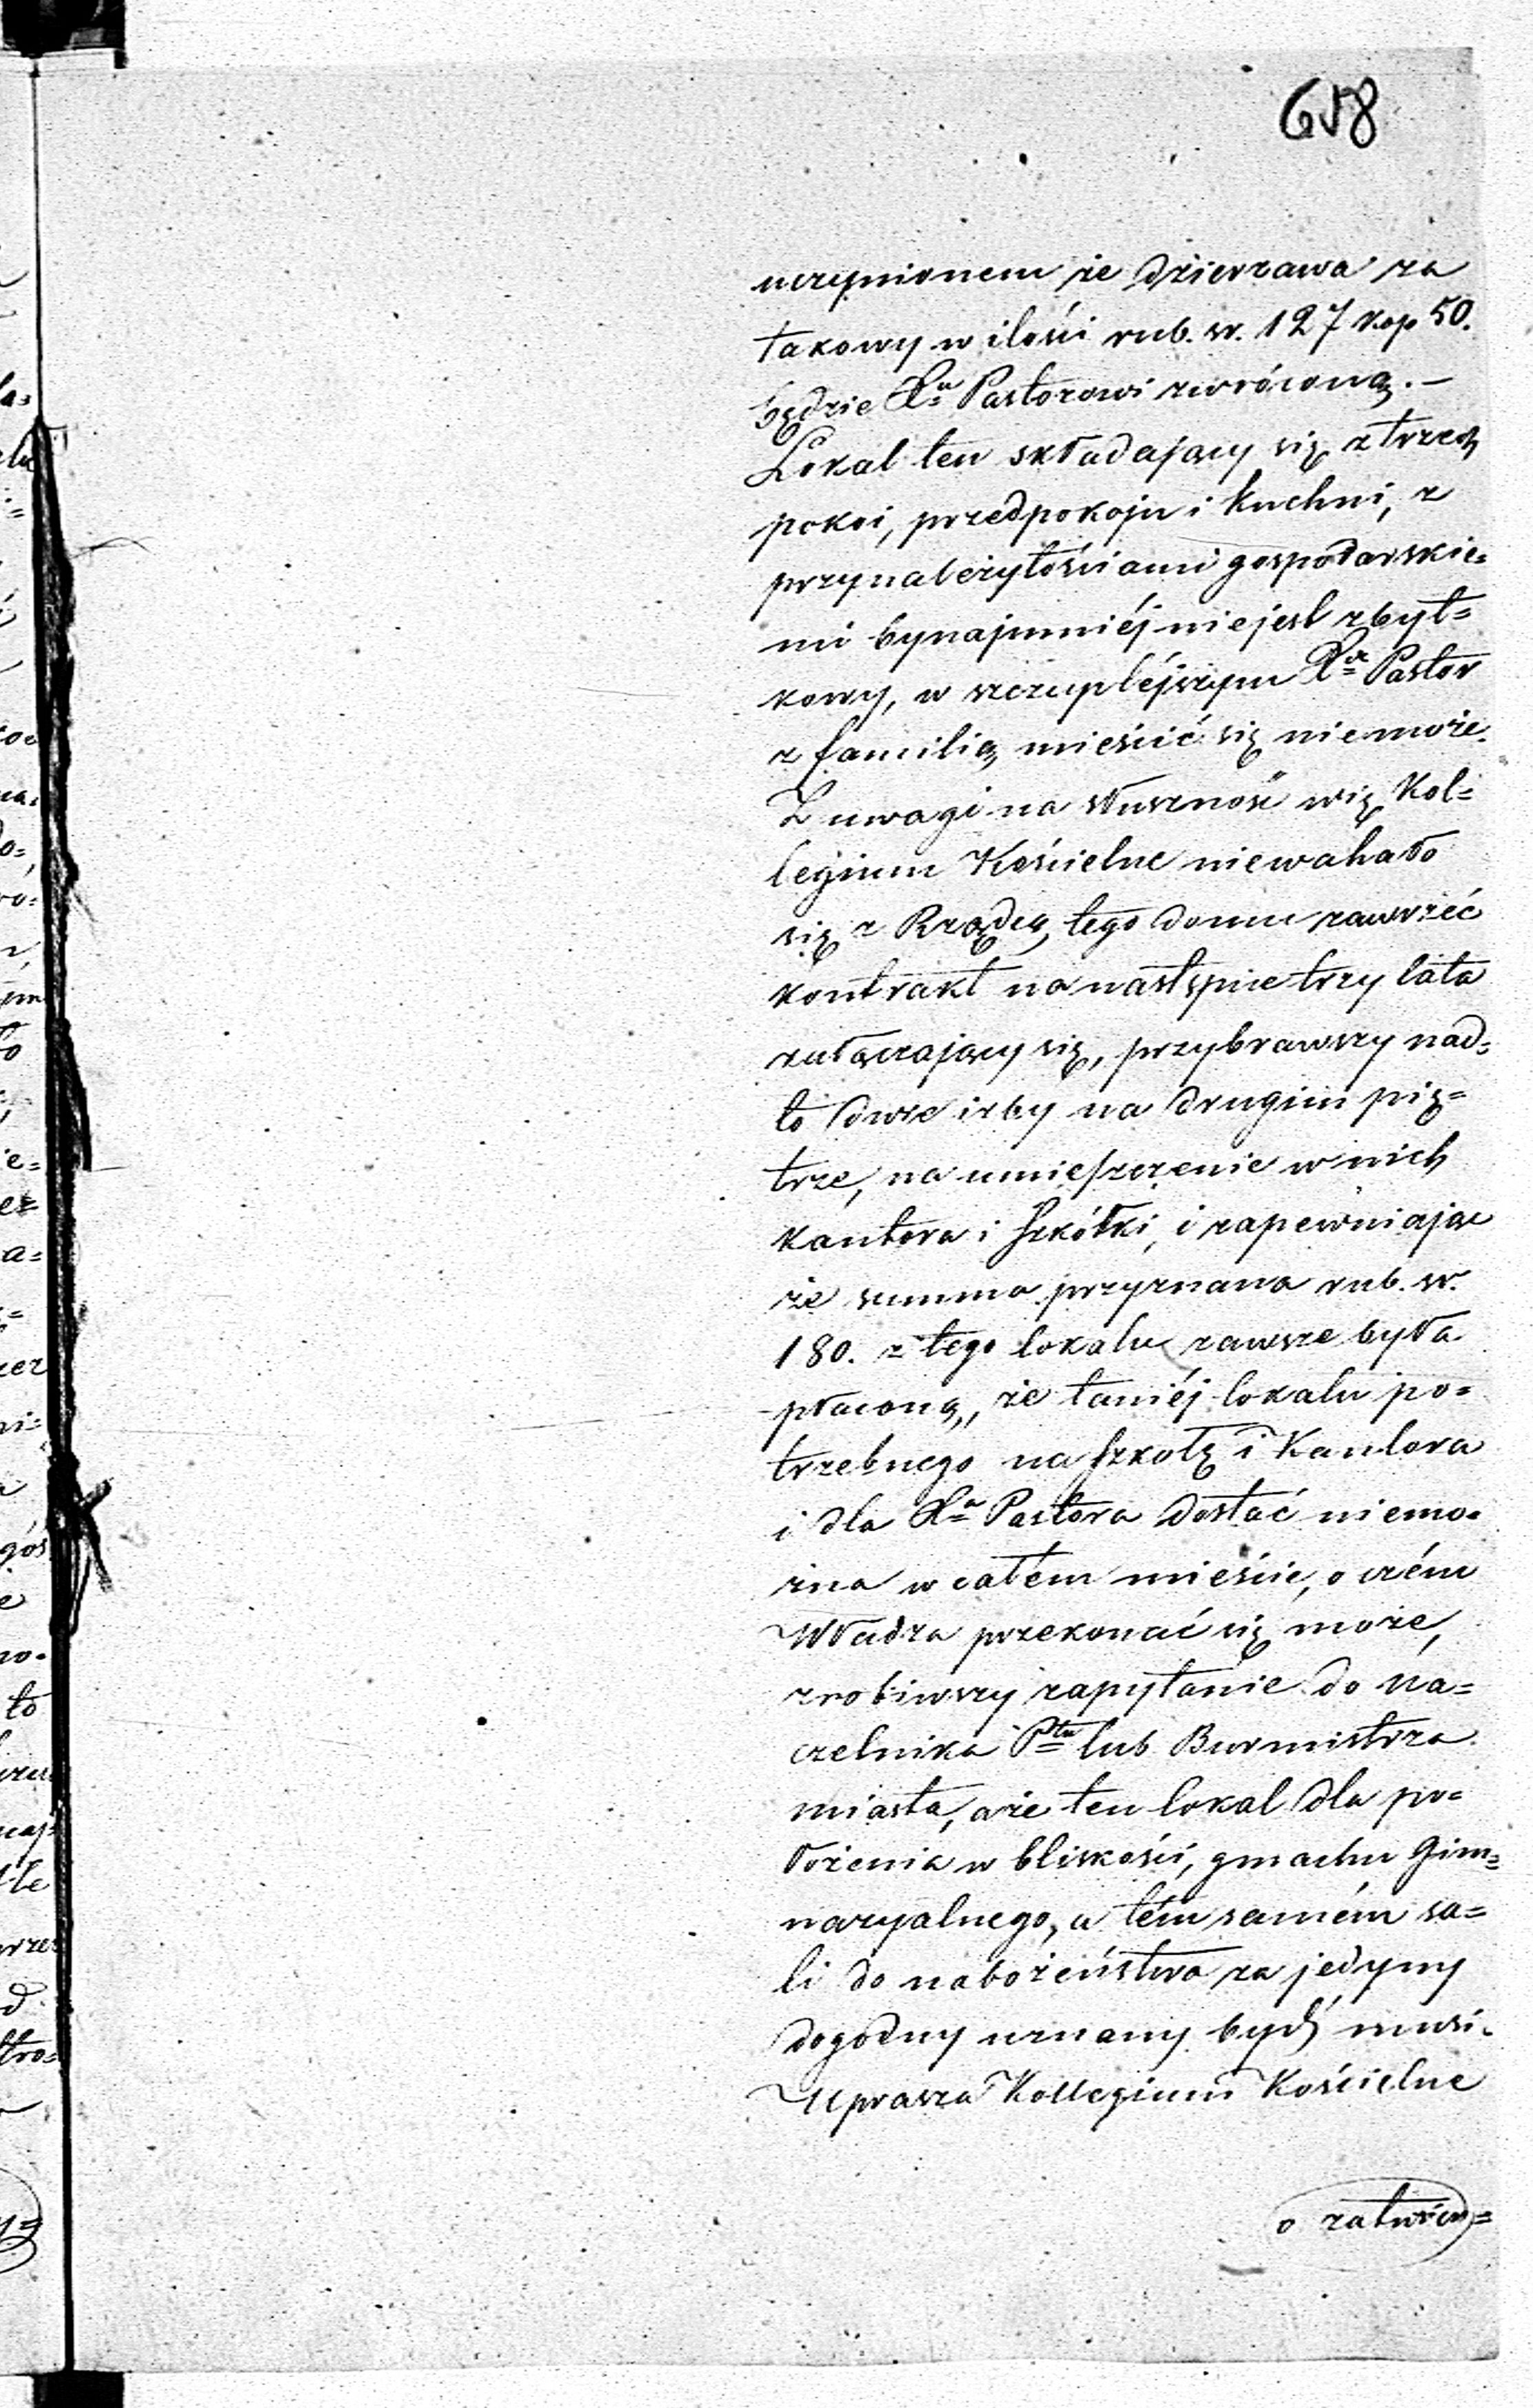 658
uczynionem że dzierzawa za
takowy w ilości rub. sr. 127 kop 50.
będzie Xu Pastorowi zwróconą. –
Lokal ten składający się z trzech
pokoi, przedpokoju i kuchni, z
przynależytościami gospodarskie=
mi bynajmniéj niejest zbyt=
kowy, w szczuplejszym Xdz Pastor
z familią mieścić się niemoże.
Z uwagi na słuszność więc Kol=
legium Kościelne niewahało
się z Rządcą tego domu zawrzeć
kontrakt na następne trzy lata
załączający się, przybrawszy nad=
to dwie izby na drugim pię=
trze, na umieszczenie w nich
Kantora i szkółki, i zapewniając
że summa przyznana rub. sr.
180. z tego lokalu zawsze była
płaconą, że taniéj lokalu po=
trzebnego na szkołę i Kantora
i dla Xa Pastora dostać niemo=
żna w całém mieście, o czém
Władza przekonać się może,
zrobiwszy zapytanie do Na=
czelnika Ptu lub Burmistrza
miasta, a że ten lokal dla po=
łożenia w bliskości, gmachu Gim=
nazyalnego, a tém samém sa=
li do nabożeństwa za jedyny
dogodny uznany bydź musi.
Uprasza Kollegium Kościelne
o zatwier=